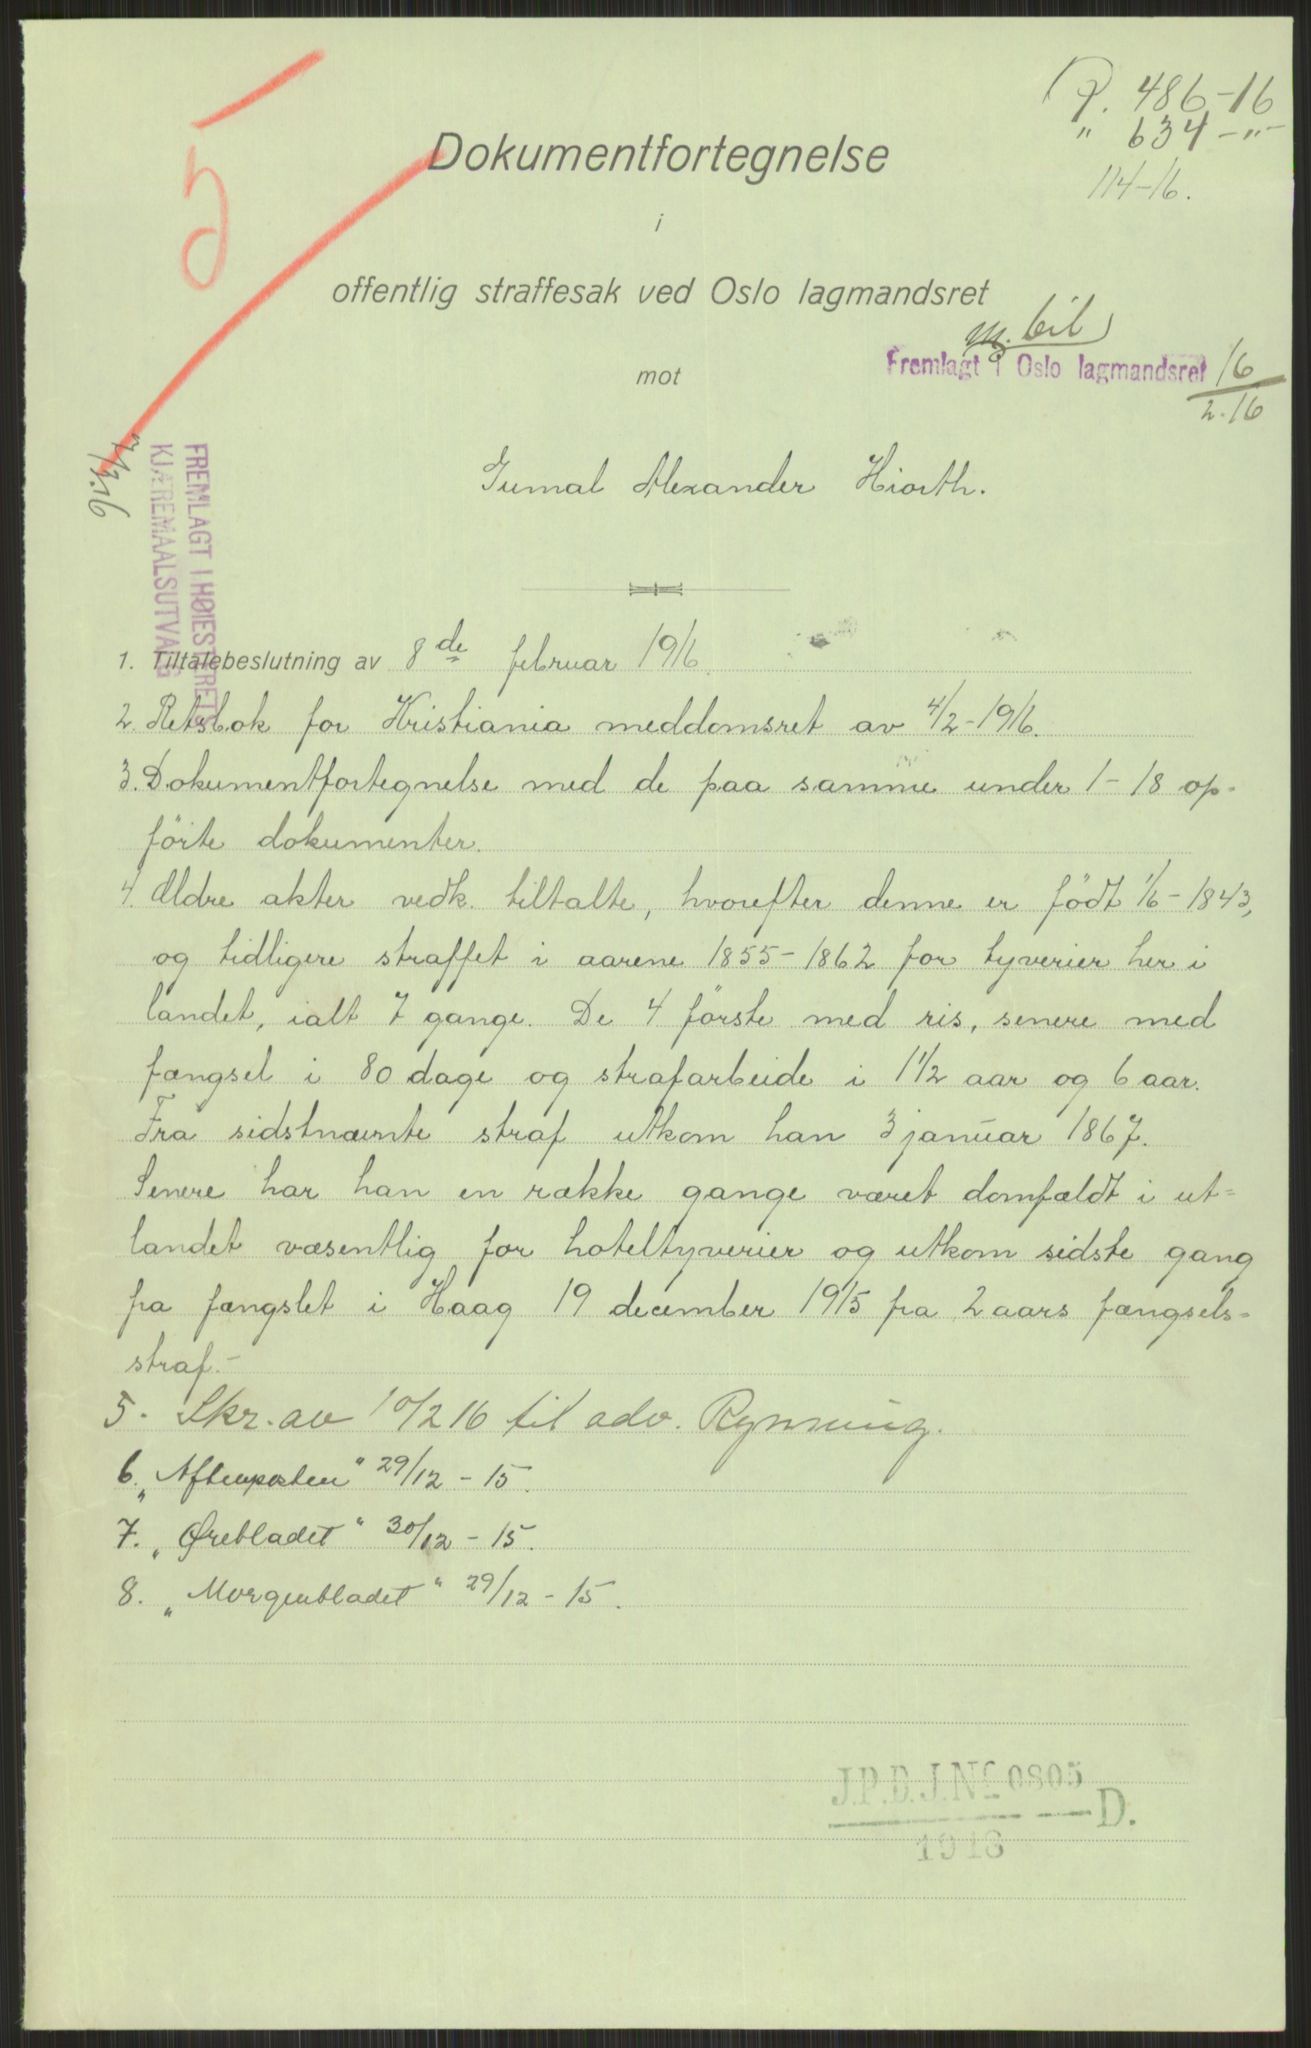 P. 486-16
" 634 -"-
114-16.
5
Dokumentfortegnelse
i
offentlig straffesak ved Oslo lagmandsret
m. bil
Fremlagt i Oslo lagmandsret 16/2.16
mot
Gumal Alexander Hiorth.
FREMLAGT I HØIESTERETS
KJÆREMAALSUTVALG
2/3.16
1. Tiltalebeslutning av 8de februar 1916.
2. Retsbok for Kristiania meddomsret av 4/2-1916.
3. Dokumentfortegnelse med de paa samme under 1-18 op-
förte dokumenter.
4. Ældre akter vedk. tiltalte, hvorefter denne er född 1/6-1843,
og tidligere straffet i aarene 1855-1862 for tyverier her i
landet, ialt 7 gange. De 4 förste med ris, senere med
fængsel i 80 dage og strafarbeide i 1 1/2 aar og 6 aar.
Fra sidstnævnte straf utkom han 3 januar 1867.
Senere har han en række gange været domfældt i ut=
landet væsentlig for hoteltyverier og utkom sidste gang
fra fængslet i Haag 19 december 1915 fra 2 aars fængsels=
straf.-
5. Skr. av 10/2 16 til adv. Rynning.
6. „Aftenposten" 29/12 - 15.
7. „Ørebladet" 30/12 - 15.
8. „Morgenbladet" 29/12 - 15.
J.P.D.J.No 0805
D.
1916